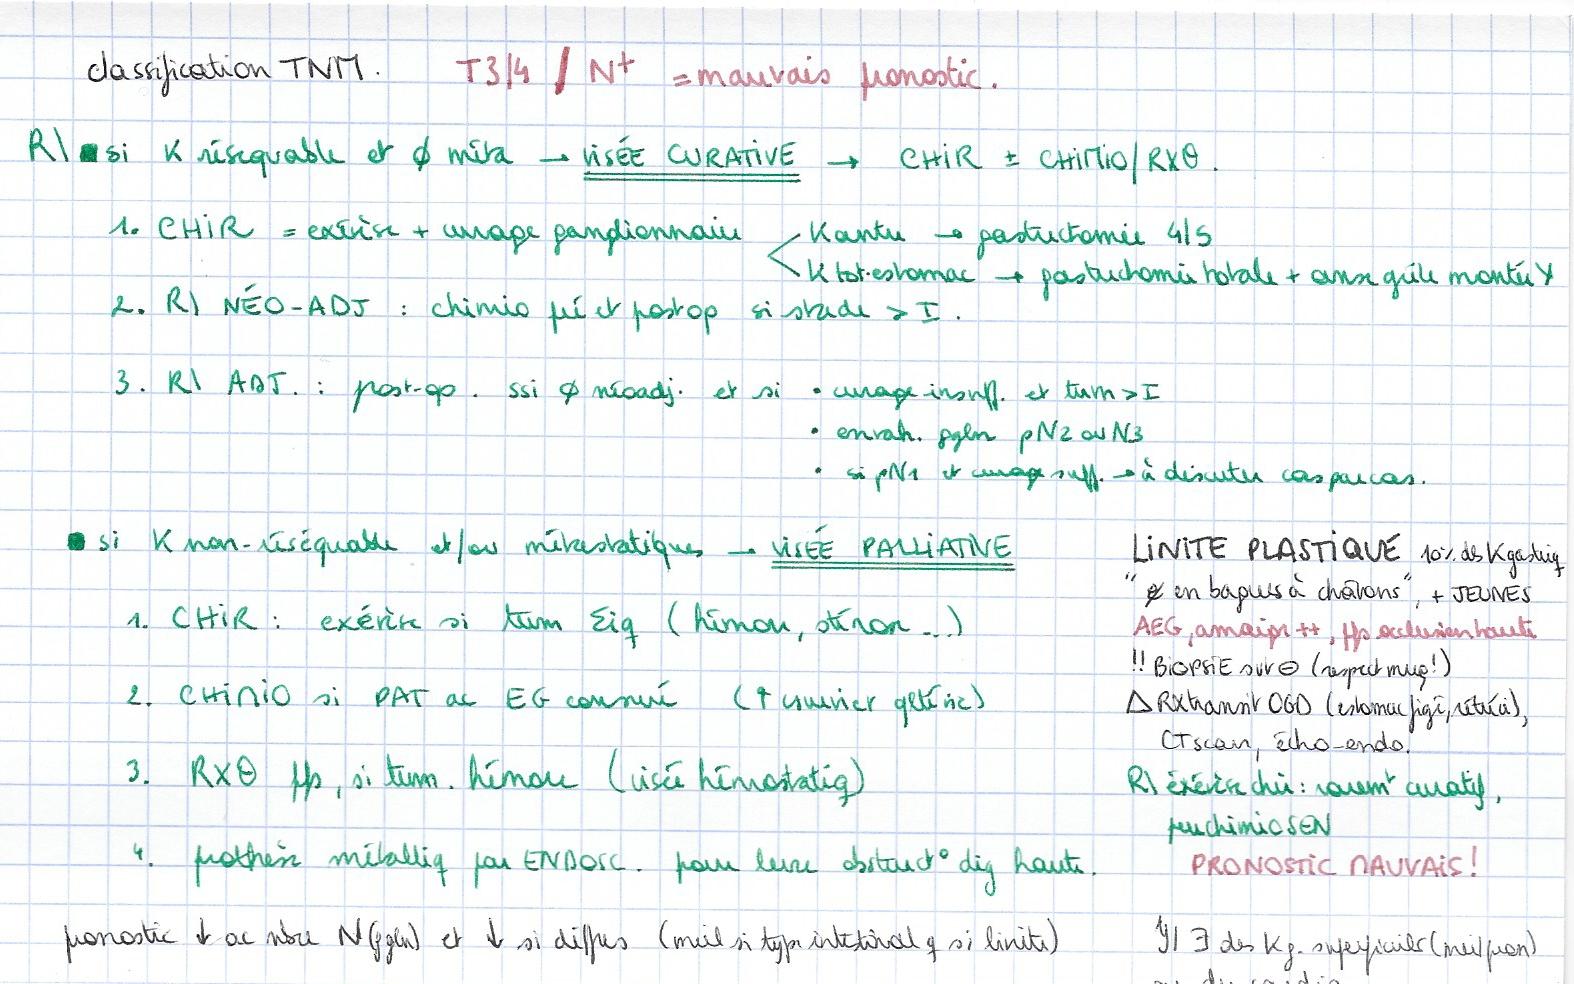 classification TNM. T3/4 / N+ = mauvais pronostic.
R\ ■ si K résequable et ∅ méta → VISÉE CURATIVE → CHIR ± CHIMIO/RXθ.
1. CHIR = exérèse + curage ganglionnaire < K antre → gastrectomie 4/5
K tot. estomac → gastrectomie totale + anse grêle montée Y
2. R\ NÉO-ADJ : chimio pré et postop si stade > I.
3. R\ ADJ. : post-op. ssi ∅ néoadj. et si • curage insuff. et tum > I
• envah. ggln pN2 ou N3
• si pN1 et curage suff. → à discuter cas par cas.
■ si K non-réséquable et/ou métastatiques → VISÉE PALLIATIVE
1. CHIR : exérèse si tum Σiq (hémorr, sténon ...)
2. CHIMIO si PAT ac EG conservé (↑ survie et qlté vie)
3. RXθ pfs, si tum. hémorr (visée hémostatiq)
4. prothèse métalliq par ENDOSC. pour lever obstruct° dig haute.
pronostic ↓ ac nbre N (ggln) et ↓ si diffus (meil si type intestinal q si linite)
LINITE PLASTIQUE 10% des K gastriq
"¢ en bagues à chatons", + JEUNES
AEG, amaigr ++, pfs occlusion haute
!! BIOPSIE svr ⊖ (respect muq!)
Δ RX transit OGD (estomac figé, rétréci),
CTscan, écho-endo.
R\ éxérèse chir : rarem^t curatif,
peu chimioSEN
PRONOSTIC MAUVAIS!
∃ des Kg. superficiels (meil pron)
du cardia